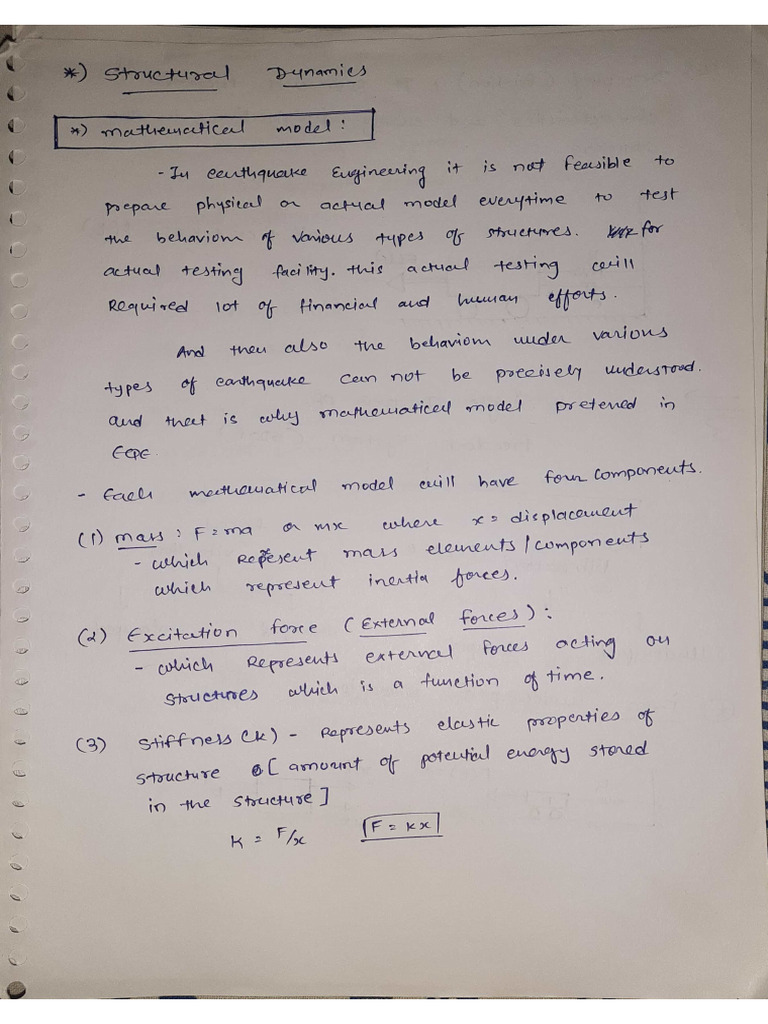 *) Structural Dynamics
*) Mathematical model :
- In earthquake Engineering it is not feasible to
prepare physical or actual model everytime to test
the behaviour of various types of structures. for
actual testing facility. this actual testing will
Required lot of financial and human efforts.
And then also the behaviour under various
types of earthquake can not be precisely understood.
and that is why mathematical model pretened in
EQE.
- Each mathematical model will have four components.
(1) mass : F = ma or mx where x = displacement
- which Represent mass elements / components
which represent inertia forces.
(2) Excitation force (External forces) :
- which Represents external forces acting on
structures which is a function of time.
(3) Stiffness (k) - Represents elastic properties of
structure [ amount of potential energy stored
in the structure ]
K = F/x F = kx